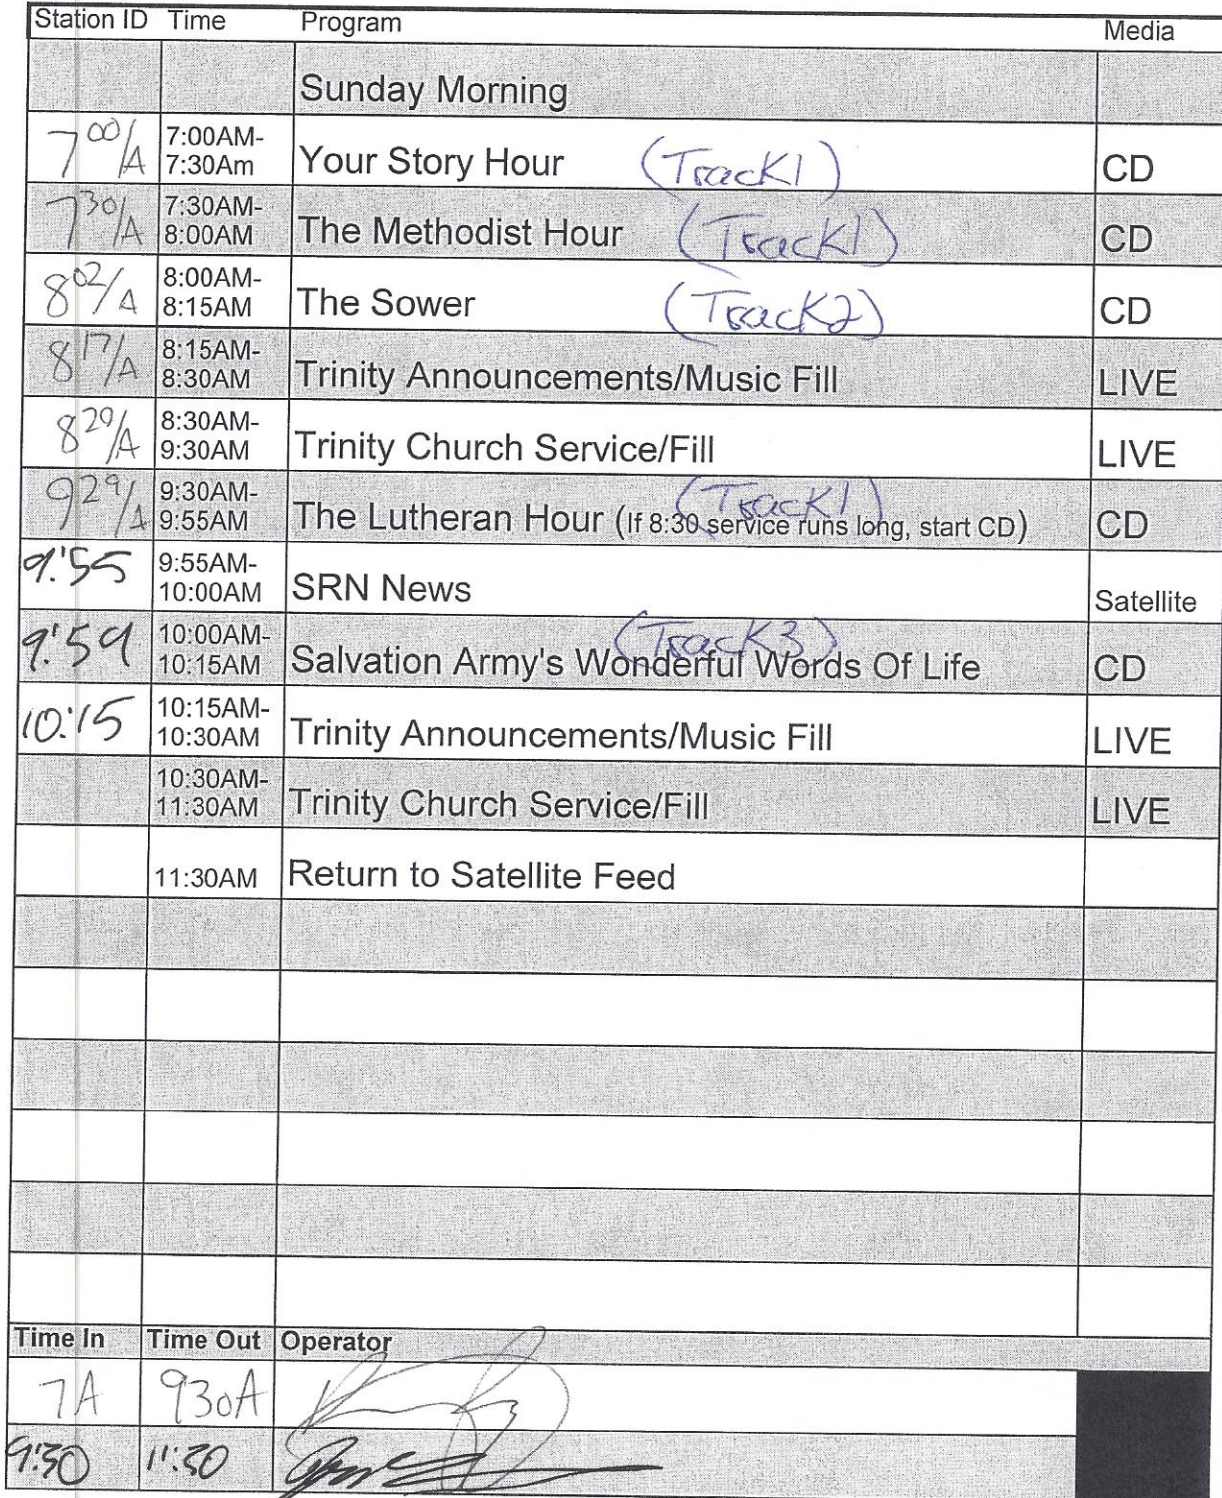 Station ID Time Program Media
Sunday Morning
7:00/A 7:00AM-7:30Am Your Story Hour (Track1) CD
7:30/A 7:30AM-8:00AM The Methodist Hour (Track1) CD
8:02/A 8:00AM-8:15AM The Sower (Track2) CD
8:17/A 8:15AM-8:30AM Trinity Announcements/Music Fill LIVE
8:29/A 8:30AM-9:30AM Trinity Church Service/Fill LIVE
9:29/A 9:30AM-9:55AM The Lutheran Hour (If 8:30 service runs long, start CD) (Track1) CD
9:55 9:55AM-10:00AM SRN News Satellite
9:59 10:00AM-10:15AM Salvation Army's Wonderful Words Of Life (Track3) CD
10:15 10:15AM-10:30AM Trinity Announcements/Music Fill LIVE
10:30AM-11:30AM Trinity Church Service/Fill LIVE
11:30AM Return to Satellite Feed
Time In Time Out Operator
7A 930A
9:30 11:30